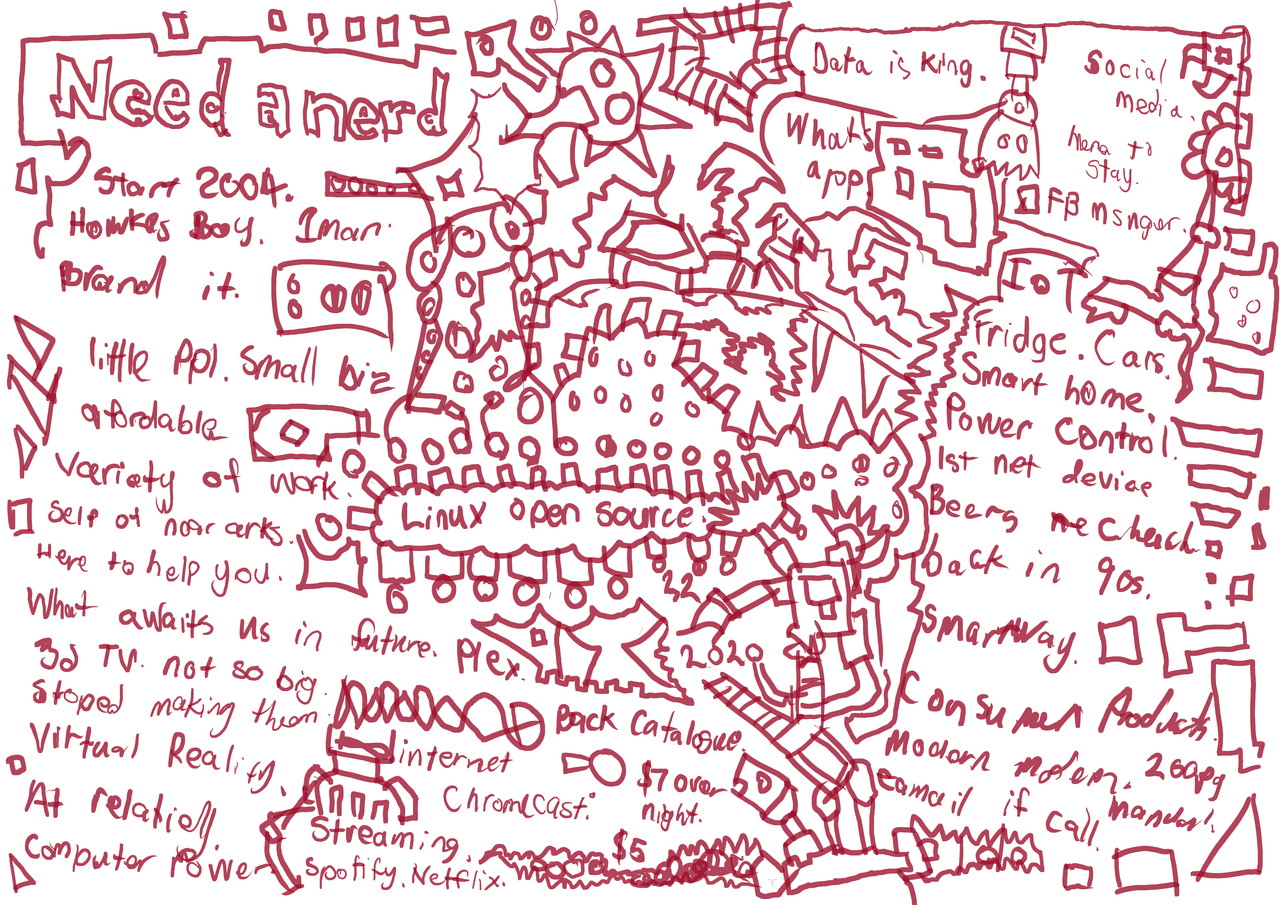 Need a nerd
Start 2004.
Howkes Boy. Iman
brand it.
little Ppl. Small biz
afordable
Variety of work.
Self of
Here to help you.
What awaits us in future.
3d TV. not so big.
Stoped making them.
Virtual Reality.
At
Computer Power
Linux Open source.
22
2020
Plex.
Back Catalogue.
internet
Chromecast.
$7 over
night.
Streaming.
$5
Spotify. Netflix.
Data is King.
Social
media.
here to
stay.
What's
app
FB msnger.
IoT
Fridge. Cars.
Smart home.
Power Control.
1st net device
Beers me check
back in 90s.
Smart Way.
Consumer Products.
Modern modem. 200pg
manual.
eamail if
call.